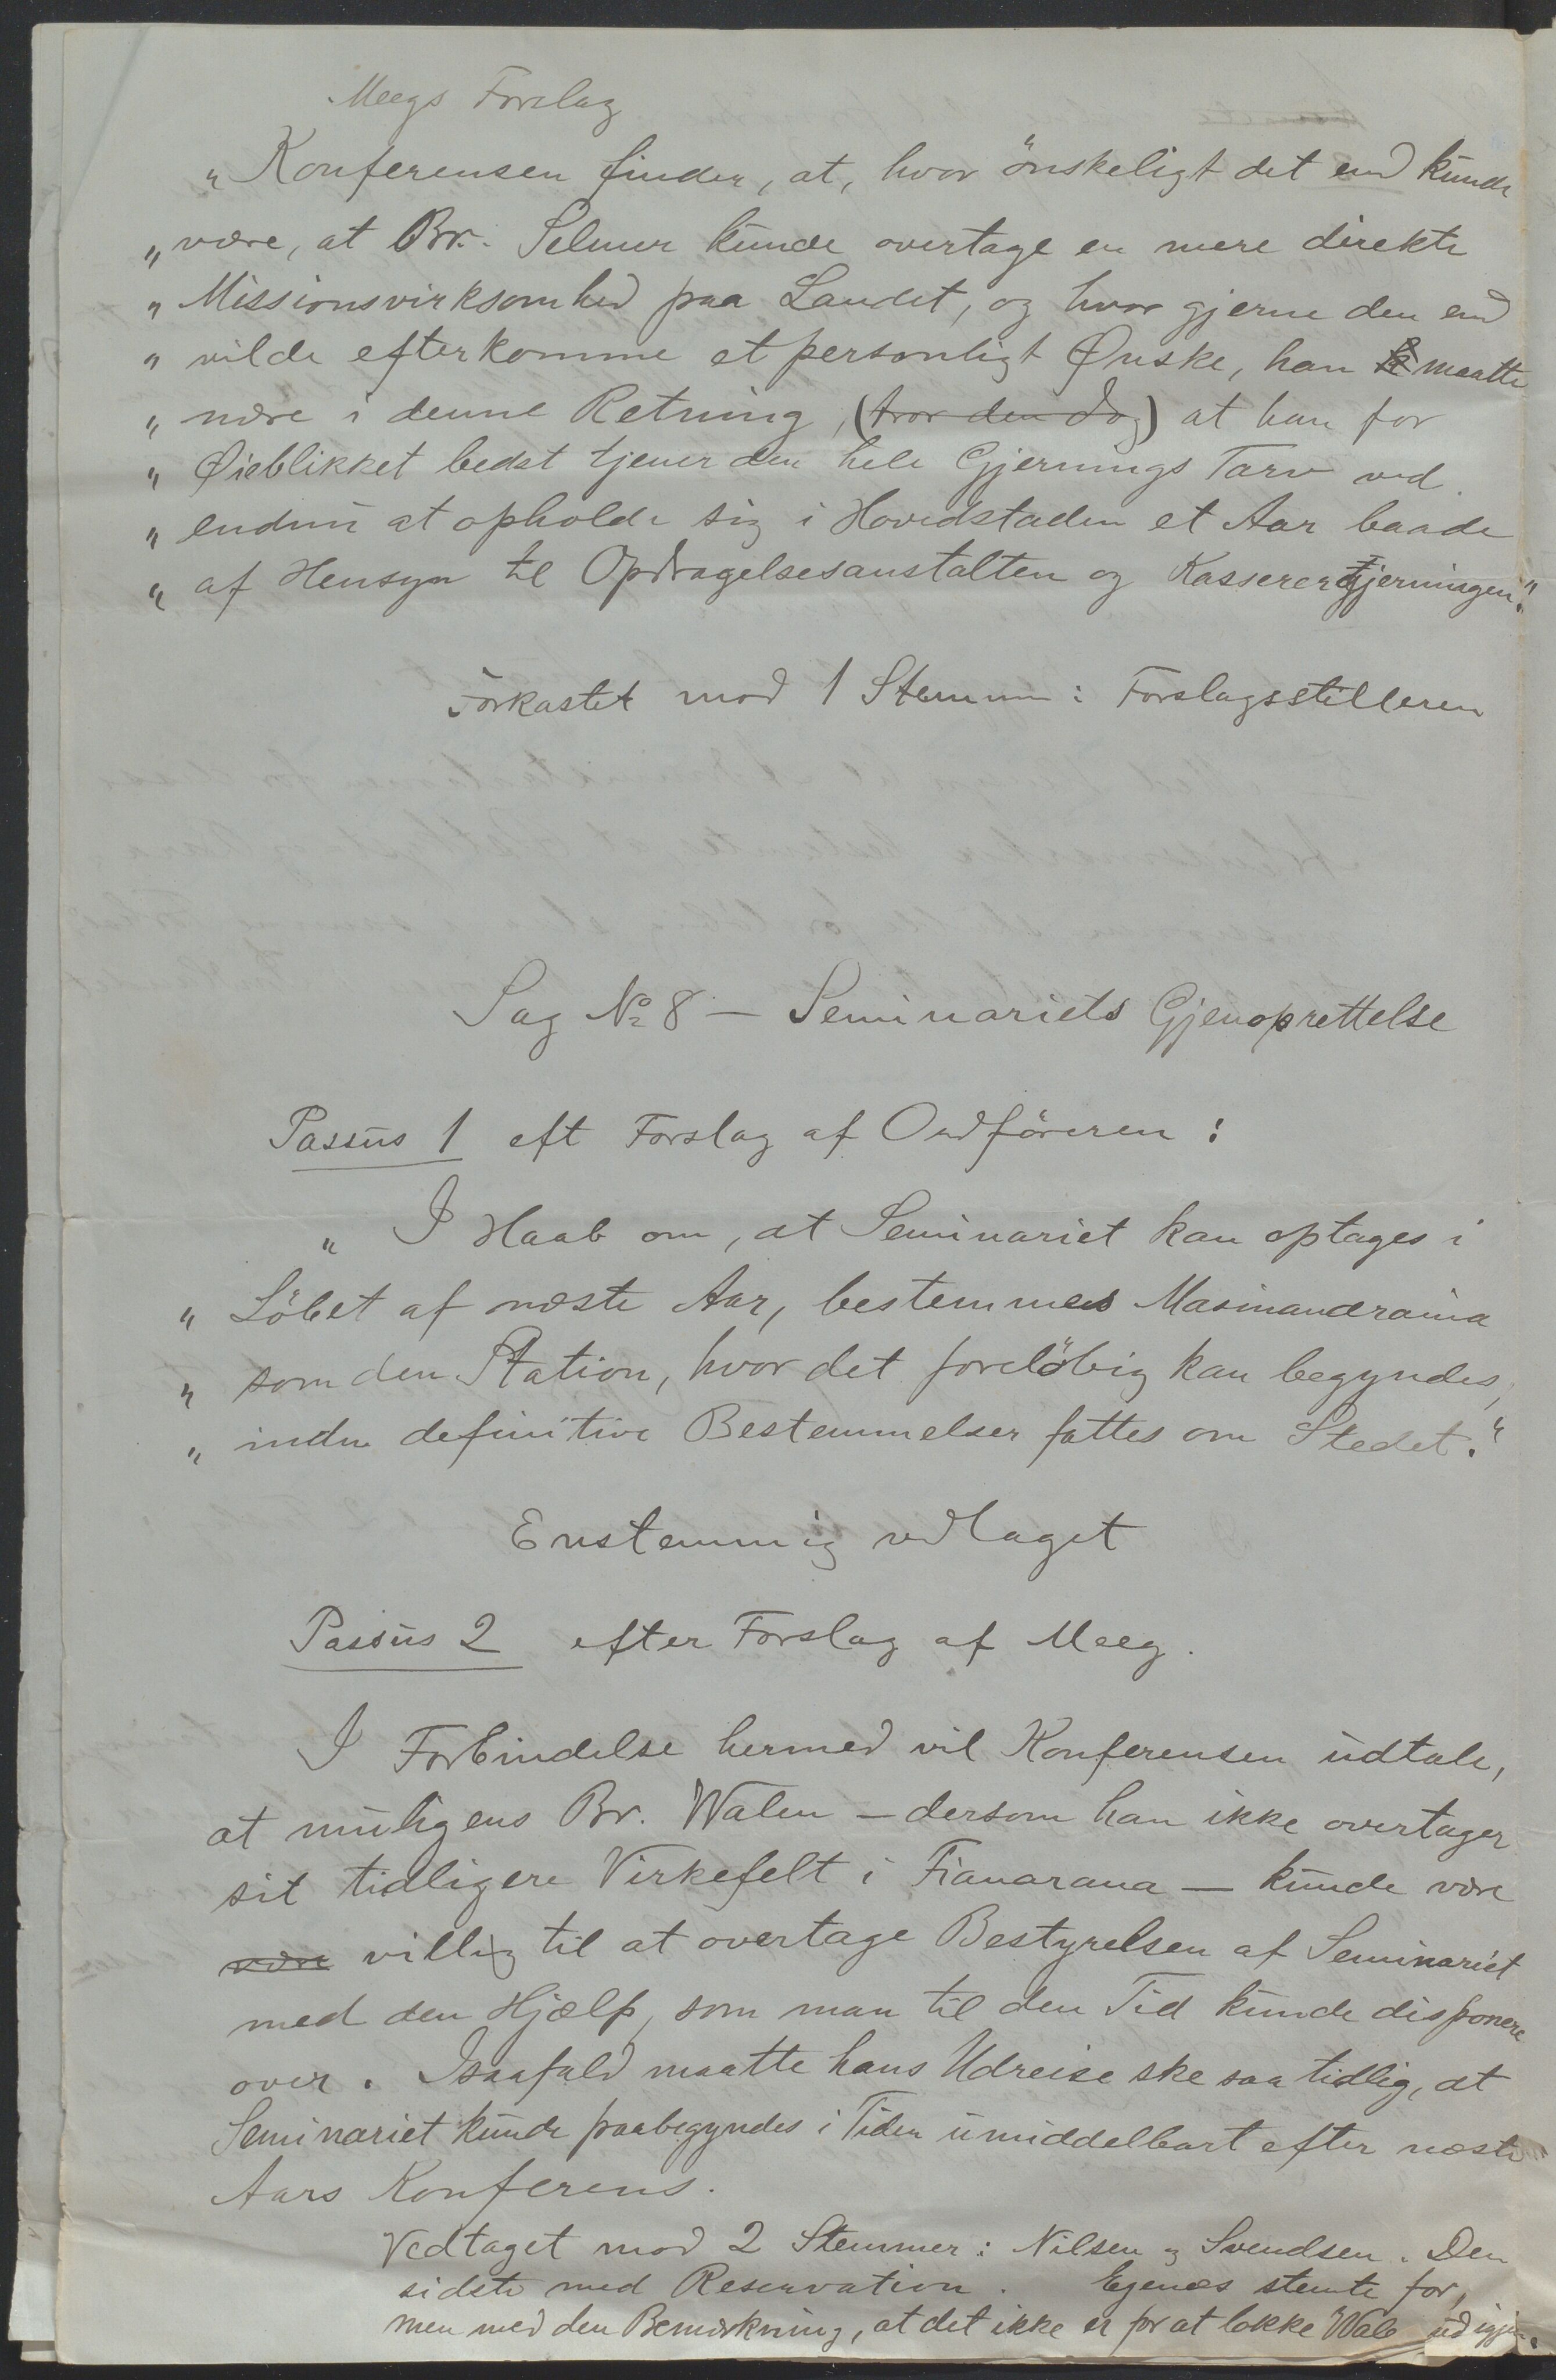 Meegs Forslag
„Konferensen finder, at, hvor önskeligt det end kunde
„være, at Br. Selmer kunde overtage en mere direkte
„Missionsvirksomhed paa Landet, og hvor gjerne den end
„vilde efterkomme et personligt Ønske, han maatte
„nære i denne Retning, (tror den dog) at han for
„Øieblikket bedst tjener den hele Gjernings Tarv ved
„endnu at opholde sig i Hovedstaden et Aar baade
„af Hensyn til Opdragelsesanstalten og Kasserergjerningen."
Forkastet mod 1 Stemme: Forslagsstilleren
Sag No 8 — Seminariets Gjenoprettelse
Passus 1 eft Forslag af Ordföreren:
„I Haab om, at Seminariet kan optages i
„Löbet af næste Aar, bestemmes Masinandraina
„som den Station, hvor det forelöbig kan begyndes,
„inden definitive Bestemmelser fattes om Stedet."
Enstemmig vedtaget
Passus 2 efter Forslag af Meeg.
I Forbindelse hermed vil Konferensen udtale,
at muligens Br. Walen — dersom han ikke overtager
sit tidligere Virkefelt i Fianarana — kunde være
være villig til at overtage Bestyrelsen af Seminariet
med den Hjælp, som man til den Tid kunde disponere
over. Isaafald maatte hans Udreise ske saa tidlig, at
Seminariet kunde paabegyndes i Tiden umiddelbart efter næste
Aars Konferens.
Vedtaget mod 2 Stemmer: Nilsen og Svendsen. Den
sidste med Reservation. Egenæs stemte for,
men med den Bemærkning, at det ikke er for at lokke Wale ud igjen.